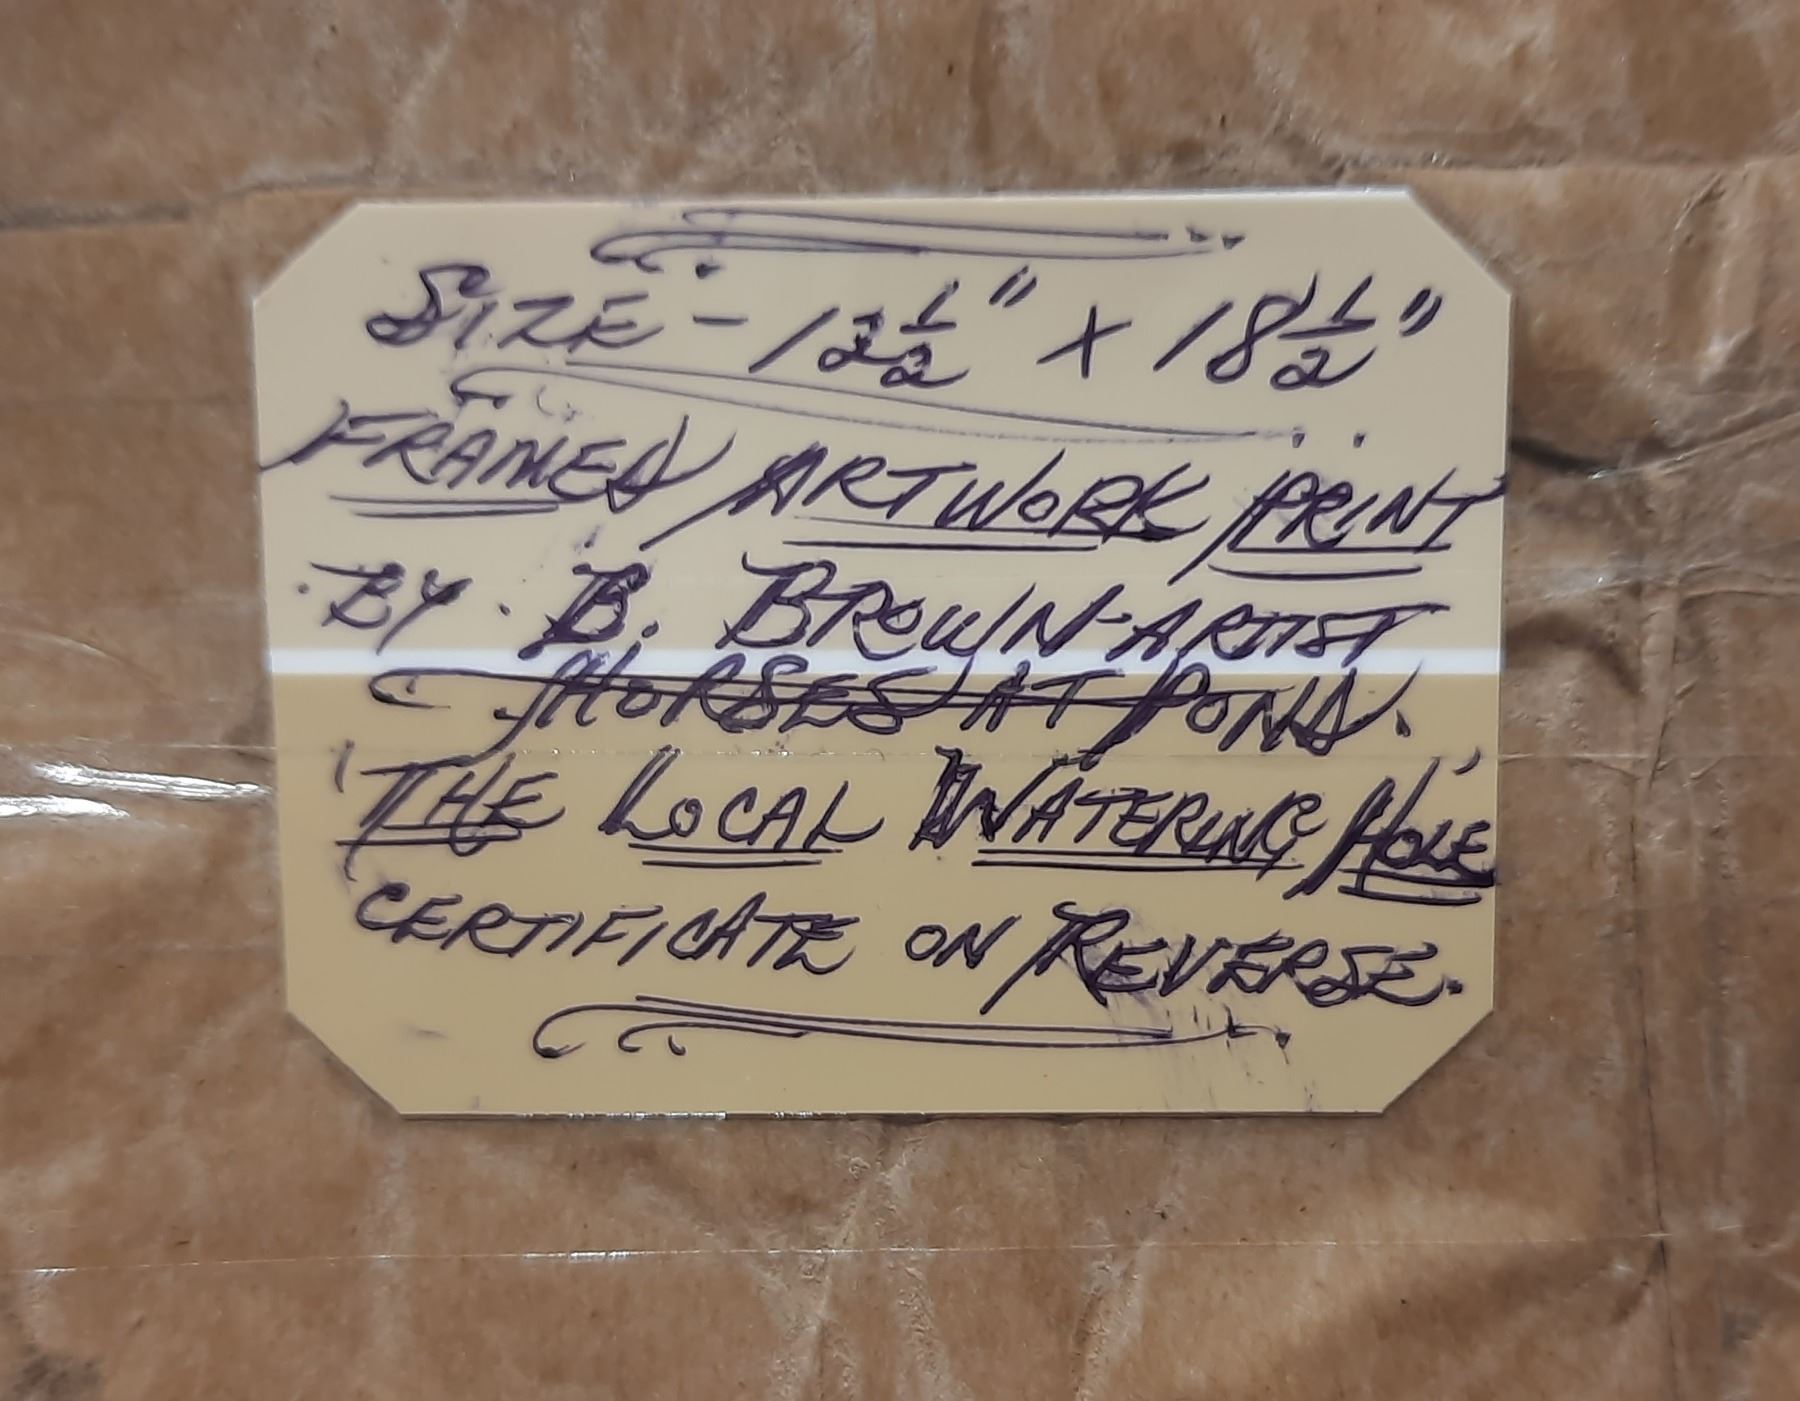 SIZE - 12 1/2" X 18 1/2"
FRAMED ARTWORK PRINT
BY. B. BROWN-ARTIST
HORSES AT POND.
'THE LOCAL WATERING HOLE'
CERTIFICATE ON REVERSE.